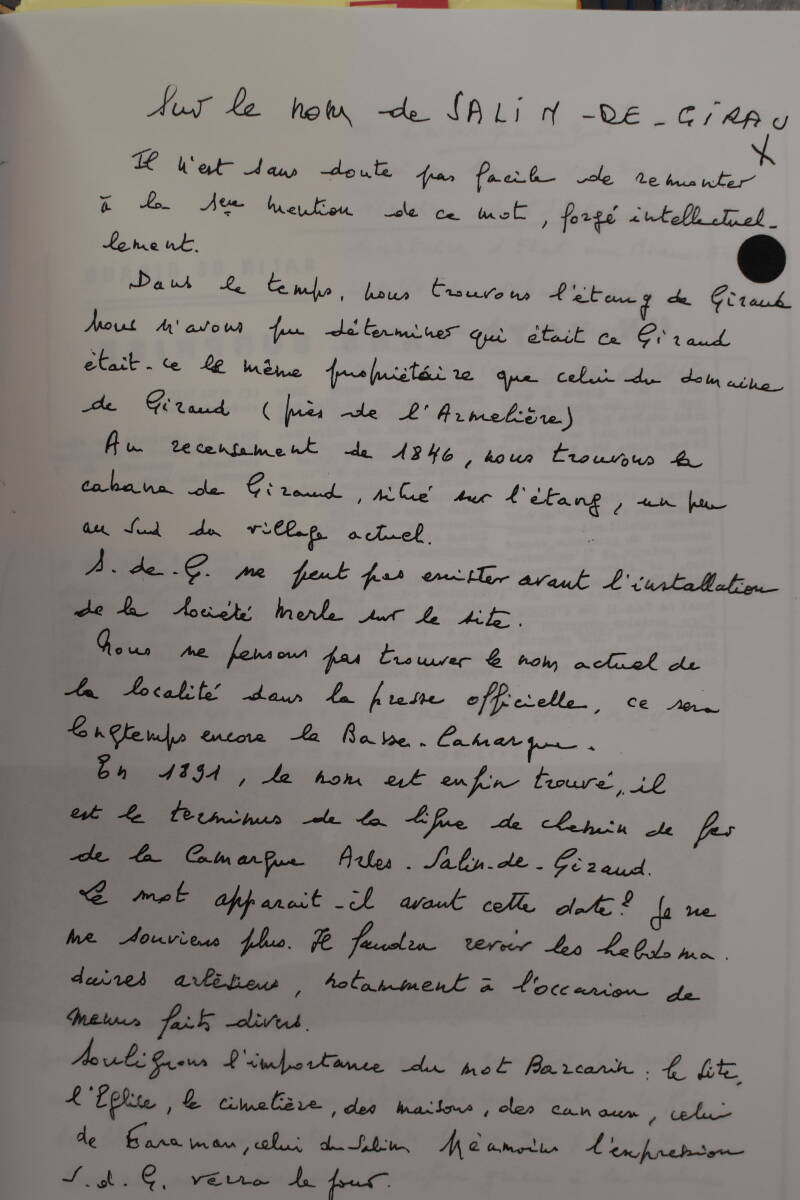 Sur le nom de SALIN-DE-GIRAU
X
Il n'est sans doute pas facile de remonter
à la 1ère mention de ce mot, forgé intellectuel-
lement.
Dans le temps, nous trouvons l'étang de Giraud
nous n'avons pu déterminer qui était ce Giraud
était-ce le même propriétaire que celui du domaine
de Giraud (près de l'Armelière)
Au recensement de 1846, nous trouvons la
cabane de Giraud, situé sur l'étang, un peu
au sud du village actuel.
S.de.G. ne peut pas exister avant l'installation
de la Société Merle sur le site.
Nous ne pensons pas trouver le nom actuel de
la localité dans la presse officielle, ce sera
longtemps encore la Basse-Camargue.
En 1891, le nom est enfin trouvé, il
est le terminus de la ligne de chemin de fer
de la Camargue Arles-Salin-de-Giraud.
Le mot apparait-il avant cette date? Je ne
me souviens plus. Il faudra revoir les hebdoma-
daires arlésiens, notamment à l'occasion de
menus faits divers.
Soulignons l'importance du mot Barcarin : le site,
l'Eglise, le cimetière, des maisons, des canaux, celui
de Faraman, celui du Salin Néamoins l'expression
S.d.G. verra le jour.